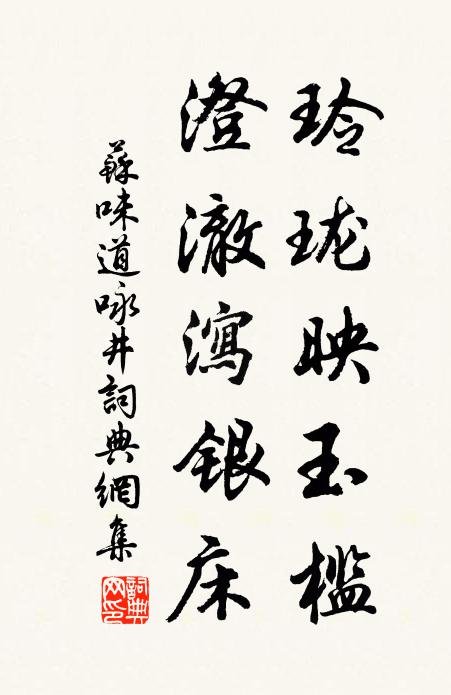 玲珑映玉槛
澄澈泻银床
蘇味道咏井詞典網集
詞典网印